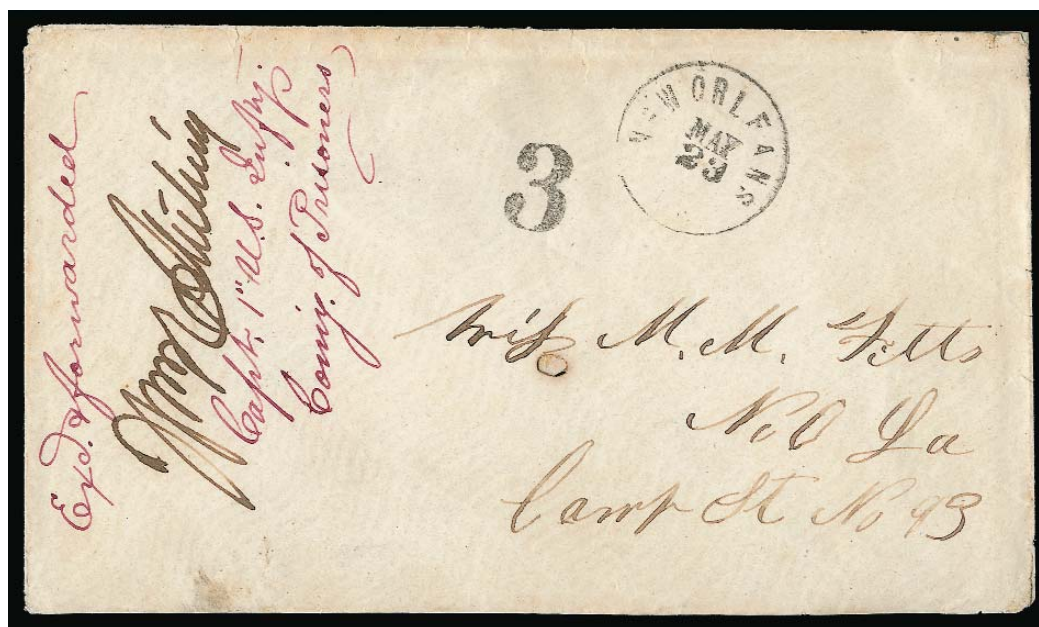 Exd. & forwarded
Capt. 1st U.S. Infty.
Comy. of Prisoners
3
NEW ORLEANS
MAY
23
M. M. Fitts
N. O La
Camp St No 93